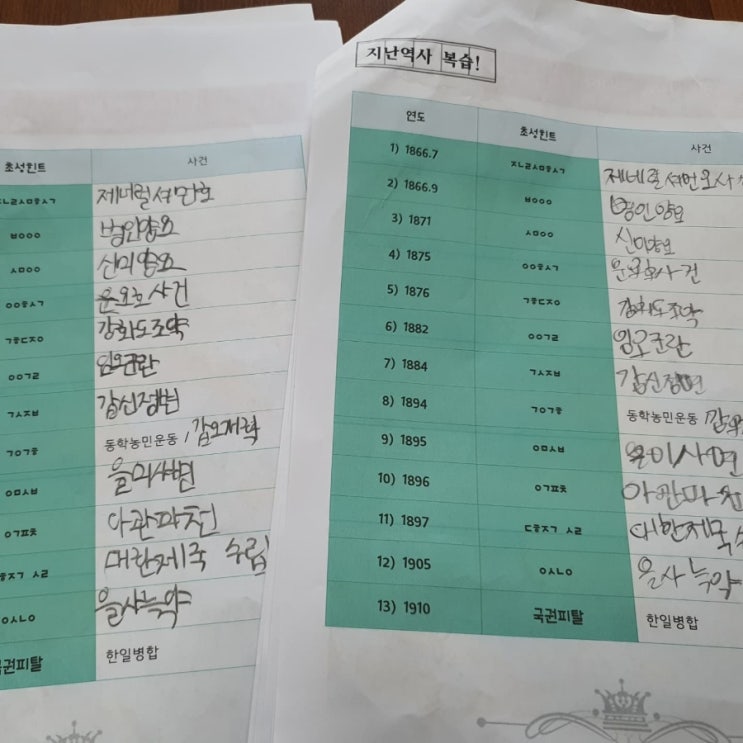 초성힌트 사건
ㅈㄴㄹㅅㅁㅎㅅㄱ 제너럴셔먼호
ㅂㅇㅇㅇ 병인양요
ㅅㅁㅇㅇ 신미양요
ㅇㅇㅎㅅㄱ 운요호사건
ㄱㅎㄷㅈㅇ 강화도조약
ㅇㅇㄱㄹ 임오군란
ㄱㅅㅈㅂ 갑신정변
ㄱㅇㄱㅎ 동학농민운동 / 갑오개혁
ㅇㅁㅅㅂ 을미사변
ㅇㄱㅍㅊ 아관파천
ㅎㅈㄱ ㅅㄹ 대한제국 수립
ㅇㅅㄴㅇ 을사늑약
국권피탈 한일병합
지난역사 복습!
연도 초성힌트 사건
1) 1866.7 ㅈㄴㄹㅅㅁㅎㅅㄱ 제네럴셔먼호사
2) 1866.9 ㅂㅇㅇㅇ 병인양요
3) 1871 ㅅㅁㅇㅇ 신미양요
4) 1875 ㅇㅇㅎㅅㄱ 운요호사건
5) 1876 ㄱㅎㄷㅈㅇ 강화도조약
6) 1882 ㅇㅇㄱㄹ 임오군란
7) 1884 ㄱㅅㅈㅂ 갑신정변
8) 1894 ㄱㅇㄱㅎ 동학농민운동 / 갑오
9) 1895 ㅇㅁㅅㅂ 을미사변
10) 1896 ㅇㄱㅍㅊ 아관파천
11) 1897 ㄷㅎㅈㄱ ㅅㄹ 대한제국
12) 1905 ㅇㅅㄴㅇ 을사늑약
13) 1910 국권피탈 한일병합